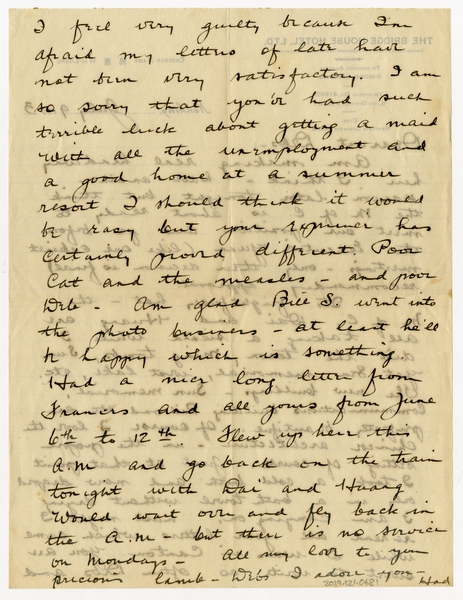 I feel very guilty because I'm
afraid my letters of late have
not been very satisfactory. I am
so sorry that you've had such
terrible luck about getting a maid
with all the unemployment and
a good home at a summer
resort I should think it would
be easy but your experience has
certainly proved different. Poor
Cat and the measles - and poor
Deb - Am glad Bill S. went into
the photo business - at least he'll
be happy which is something.
Had a nice long letter from
Frances and all yours from June
6th to 12th. Flew up here this
A.M and go back on the train
tonight with Dai and Huang
Would wait over and fly back in
the A.M - but there is no service
on Mondays - All my love to you
precious lamb - Debs I adore you -
Had
2019.121.0481